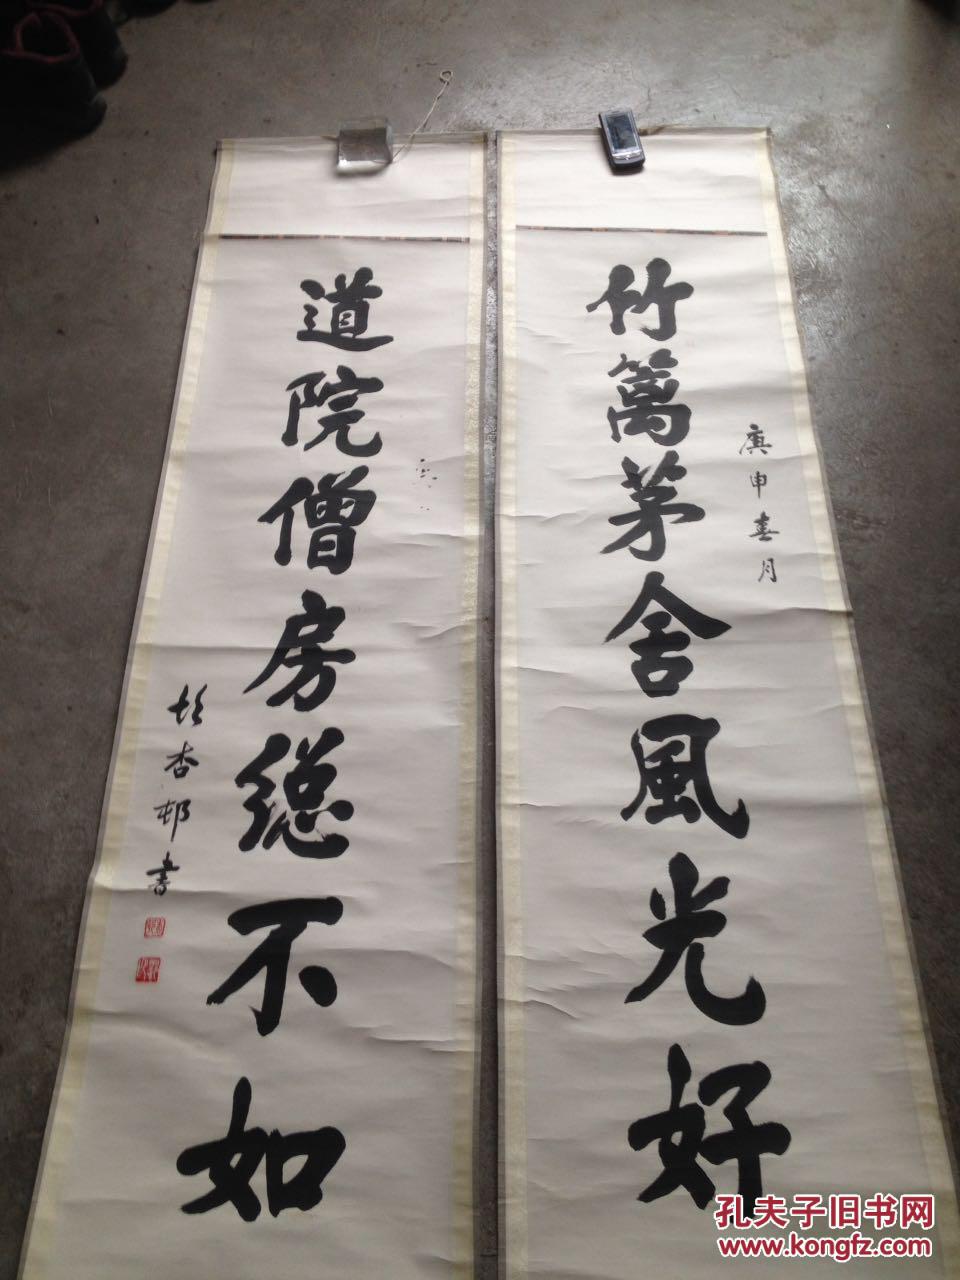 竹篱茅舍風光好
庚申春月
道院僧房總不如
杏邨書
孔夫子旧书网
www.kongfz.com